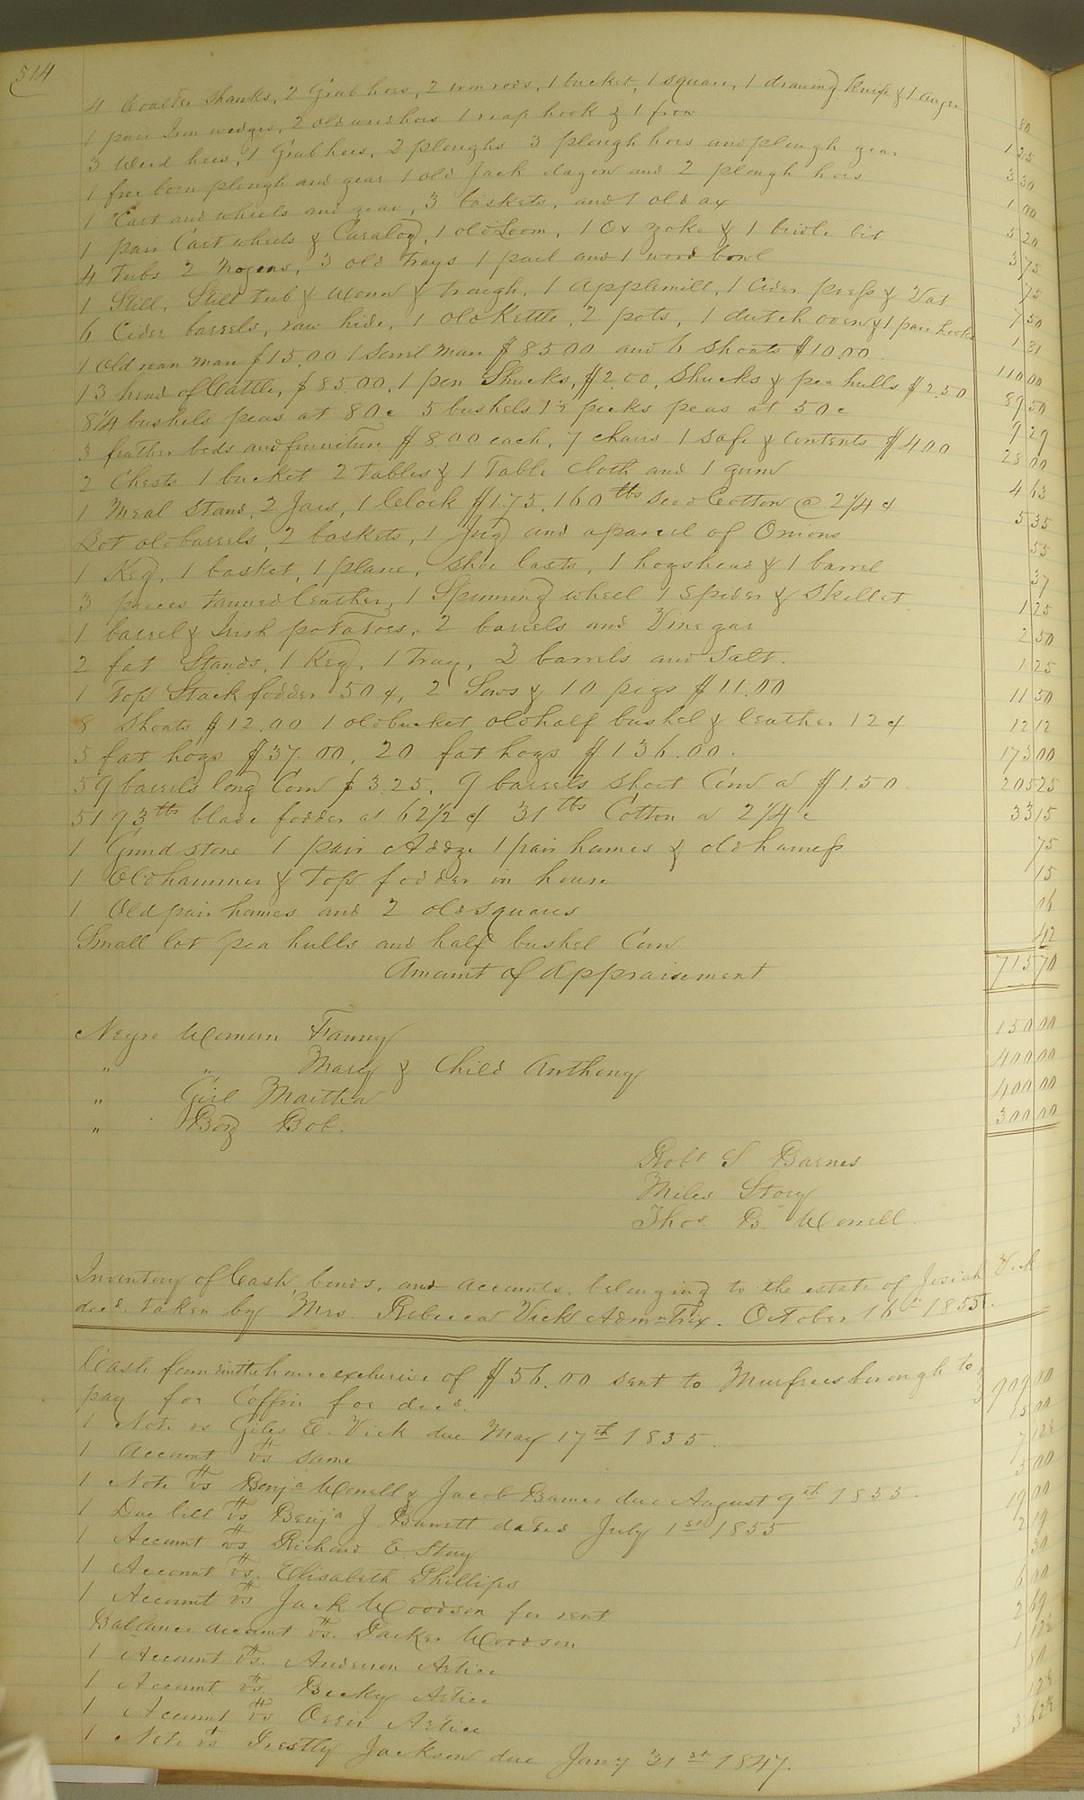 514
4 Coalter Shanks, 2 Grub hoes, 2 iron rods, 1 bucket, 1 square, 1 drawing Knife & 1 auger 80
1 pair Iron wedges, 2 old weed hoes 1 reap hook & 1 frow 1 25
3 Weed hoes, 1 Grub hoe, 2 ploughs 3 plough hoes and plough gear 3 30
1 free born plough and gear 1 old Jack and 2 plough hoes 1 00
1 Cart and wheels and gear, 3 baskets, and 1 old ax 5 20
1 pair Cart wheels &, 1 old Loom, 1 Ox yoke & 1 bridle bit 3 75
4 Tubs 2 Nogens, 3 old Trays 1 pail and 1 wood bowl 75
1 Still, Still tub & Worm & trough, 1 applemill, 1 Cider press & Vat 7 50
6 Cider barrels, raw hide, 1 old Kettle, 2 pots, 1 dutch oven & 1 pair hooks 1 81
1 Old roan mare $15.00 1 Sorrel mare $85.00 and 6 Shoats $10.00 110 00
13 head of Cattle, $85.00, 1 pen Shucks, $2.00, Shucks & pea hulls $2.50 89 50
8 1/4 bushels peas at 80c 5 bushels 1 1/2 pecks peas at 50c 9 29
3 feather beds and furniture $8.00 each, 7 chairs 1 Safe & Contents $4.00 28 00
2 Chests 1 bucket 2 Tables & 1 Table Cloth and 1 gun 4 63
1 Meal Stand, 2 Jars, 1 Clock $1.75, 160 lbs Seed Cotton @ 2 1/4 ¢ 5 35
Lot old barrels, 2 baskets, 1 Jug and a parcel of Onions 55
1 Keg, 1 basket, 1 plane, Shoe lasts, 1 hogshead & 1 barrel 37
3 pieces tanned leather, 1 Spinning wheel 1 Spider & Skillet 1 25
1 barrel & Irish potatoes, 2 barrels and Vinegar 2 50
2 fat Stands, 1 Keg, 1 Tray, 2 barrels and Salt. 1 25
1 Top Stack fodder 50¢, 2 Sows & 10 pigs $11.00 11 50
8 Shoats $12.00 1 old bucket old half bushel & leather 12¢ 12 12
5 fat hogs $37.00, 20 fat hogs $136.00. 173 00
59 barrels long Corn $3.25, 9 barrels short Corn a $1.50 205 25
5193 lbs blade fodder at 62 1/2 ¢ 31 lbs Cotton a 2 1/4 c 33 15
1 Grind stone 1 pair Adoze 1 pair hames & old harness 75
1 Old hammer & Top fodder in house 15
1 Old pair hames and 2 old squares 06
Small lot pea hulls and half bushel Corn 42
Amount of Appraisement 715 70
Negro Woman Fanny 150 00
" " Mary & Child Anthony 400 00
" Girl Martha 400 00
" Boy Bob. 300 00
Robt S Barnes
Miles Story
Thos. B. Worrell
Inventory of Cash, bonds, and accounts belonging to the estate of Josiah Vick
decd. taken by Mrs. Rebecca Vick Admntrix. October 16th 1855.
Cash found in the house exclusive of $56.00 sent to Murfreesborough to
pay for Coffin for decd. 909 00
1 Note vs Giles E. Vick due May 17th 1855. 15 00
1 Account vs same 7 12½
1 Note vs Benja Worrell & Jacob Barnes due August 9th 1855. 5 00
1 Due bill vs Benja J Barrett dated July 1st 1855 19 00
1 Account vs Richard E Story 2 19
1 Account vs. Elisabeth Phillips 30
1 Account vs Jack Woodson for rent 6 00
Ballance account vs. Parker Woodson 2 69
1 Account vs. Anderson Artice 1 12½
1 Account vs. Becky Artice 50
1 Account vs Artice 12½
1 Note vs Jackson due Jany 31st 1847. 3 62½